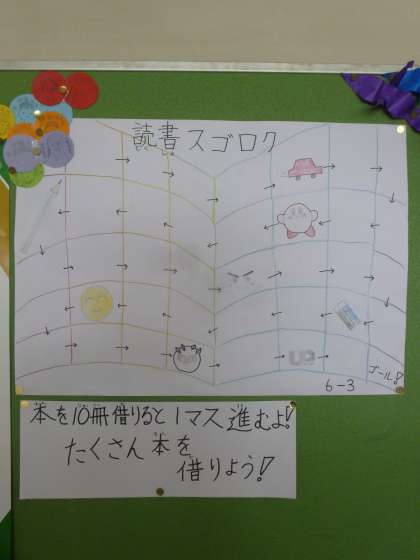 読書スゴロク
ゴール!
6-3
本を10冊借りると1マス進むよ!
たくさん本を
借りよう!